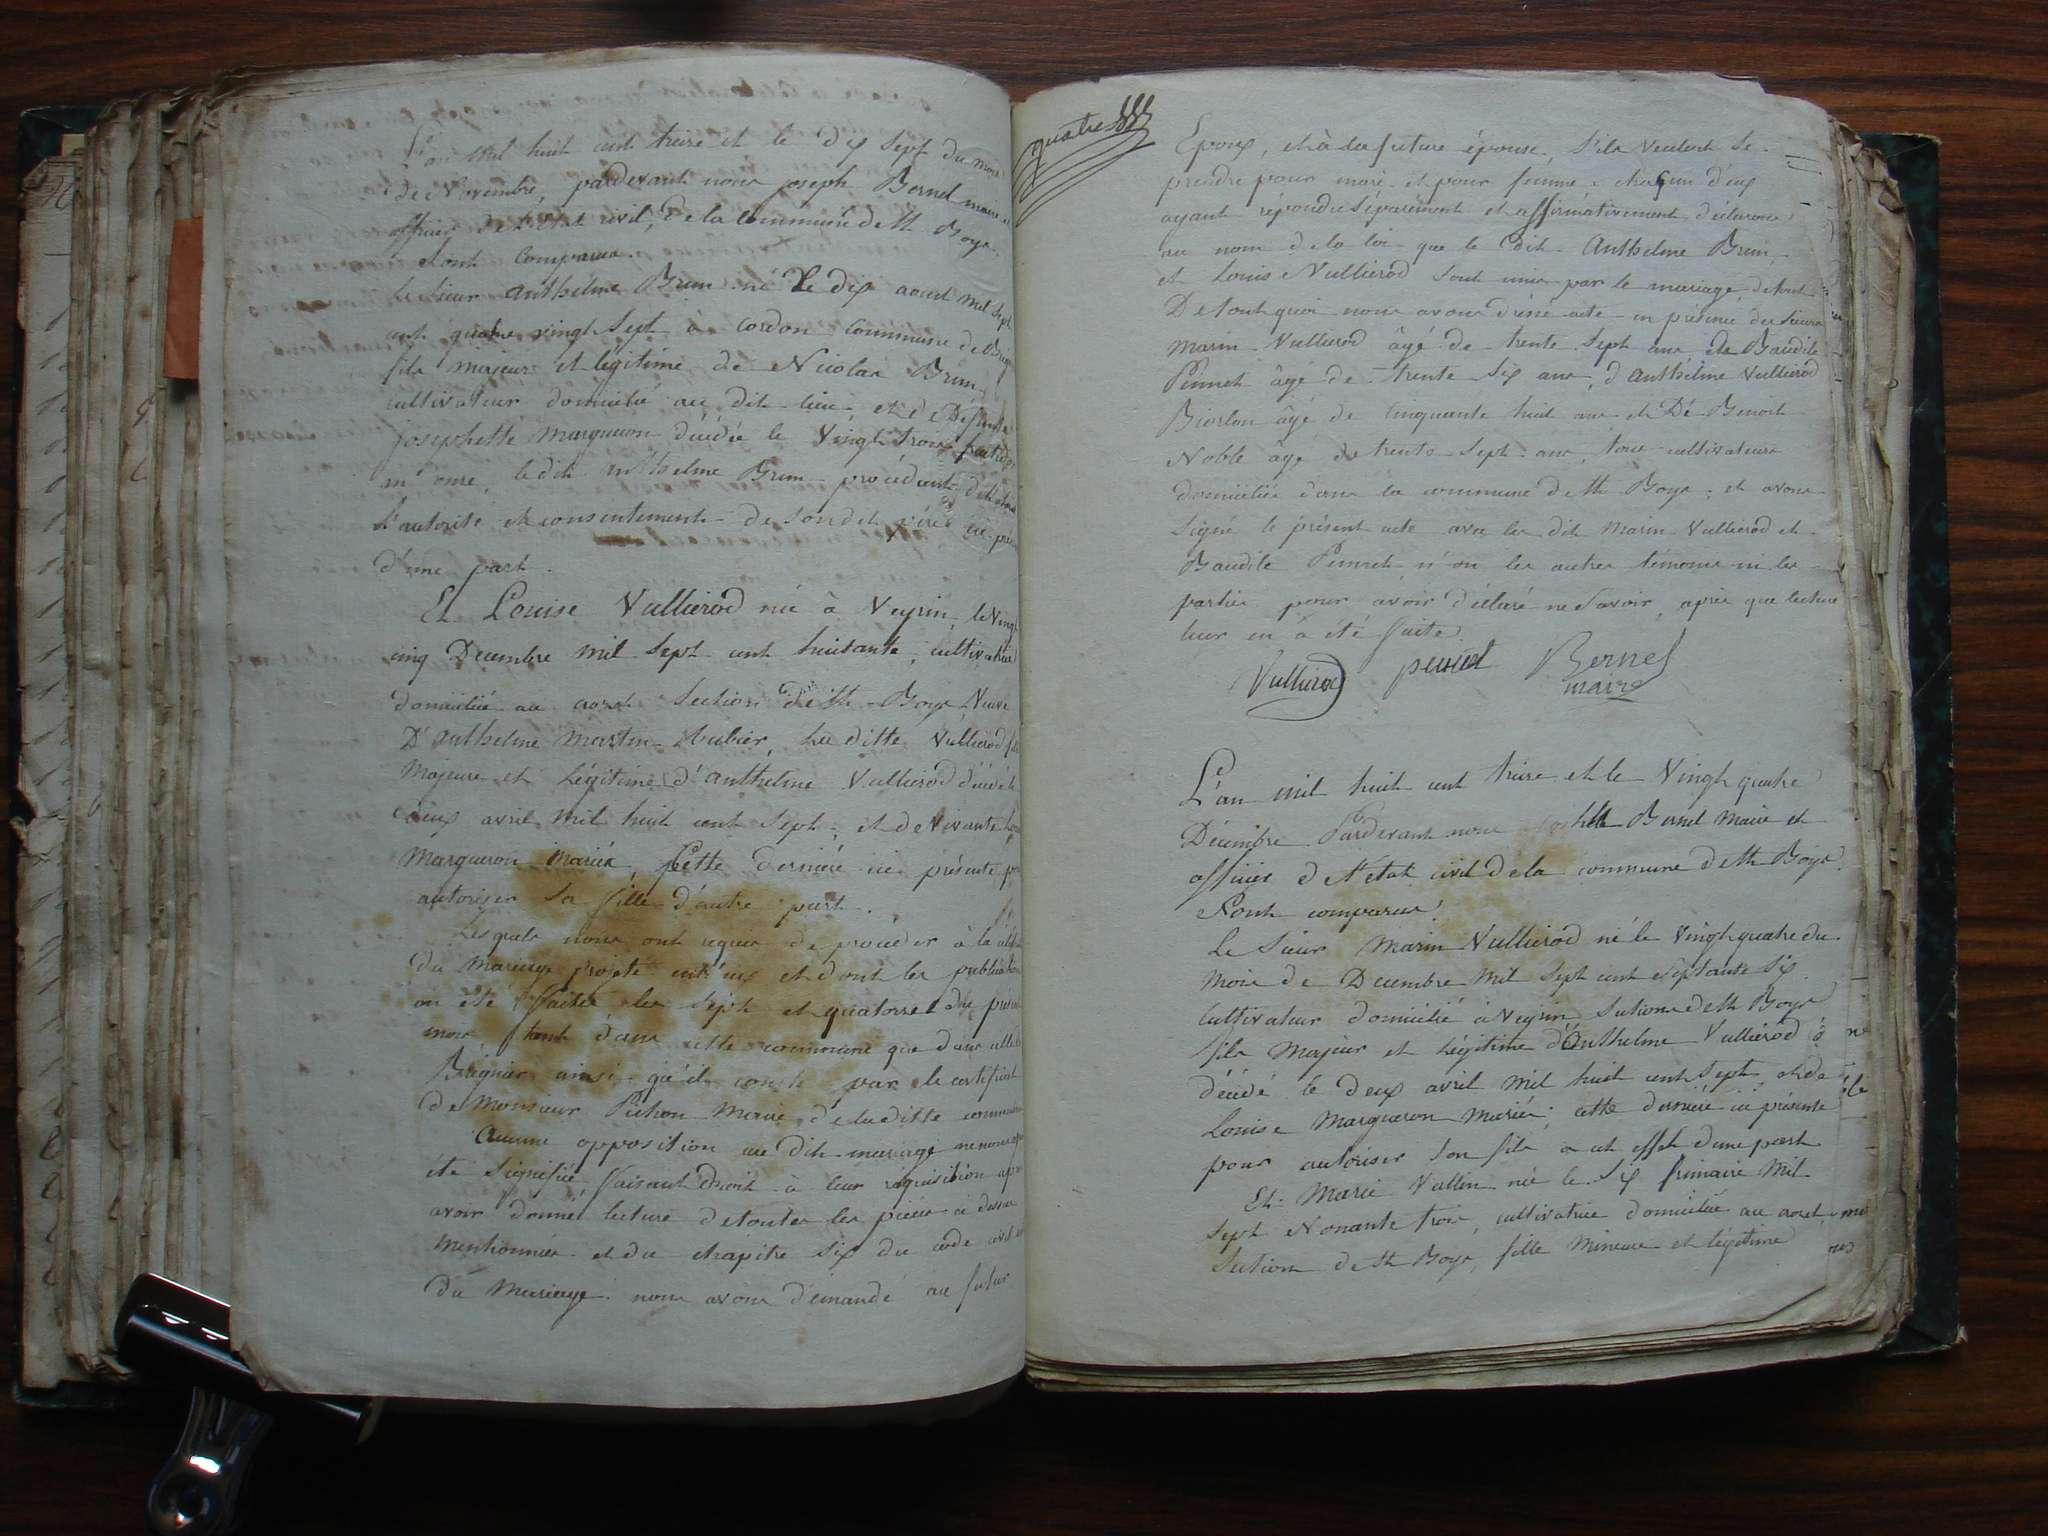 L'an mil huit cent treize et le dix sept du mois
de Novembre, pardevant nous joseph Bernel maire et
officier de l'état civil, de la commune de St Boys.
Sont comparus.
Le sieur anthelme Brun né le dix aoust mil sept
cent quatre vingt sept à cordon commune de
fils majeur et légitime de Nicolas Brun
cultivateur domicilié au dit lieu, et de Défunte
josephette margueron décédée le Vingt trois
an onze, le dit anthelme Brun procédant de
l'autorité et consentement de son dit père ici
d'une part.
Et Louise Vullierod née à Neyrin, le Vingt
cinq Decembre mil sept cent huitante, cultivatrice
domiciliée au aost Section de St Boys Veuve
D'anthelme Martin Cubier, La ditte Vullierod
Majeure et Légitime d'anthelme Vullierod décédé le
deux avril mil huit cent sept, et de vivante
Margueron mariés, cette dernière ici présente
autoriser sa fille d'autre part.
Lesquels nous ont requis de procéder à la
du mariage projeté entr'eux et dont les publications
on été faites les sept et quatorze du présent
mois, tant dans cette commune que dans celle
Brégnier ainsi qu'il conste par le certificat
de Monsieur Pichon maire de laditte commune
aucune opposition au dit mariage ne nous
été signifiée faisant droit à leur réquisition
avoir donné lecture de toutes les pièces ci dessus
mentionnées et du chapitre six du code civil
du Mariage. nous avons démandé au futur
quatre
Epoux, et à la future épouse, s'ils veulent se
prendre pour mari et pour femme, chaqun d'eux
ayant répondu séparement et affirmativement déclarons
au nom de la loi que le dit Anthelme Brun
et Louise Vullierod sont unis par le mariage,
De tout quoi nous avons dressé acte en présence des sieurs
marin Vullierod âgé de trente sept ans, de Baudile
Pennet âgé de trente six ans, d'anthelme Vullierod
Biorlon âgé de cinquante huit ans et De Benoit
Noble âgé de trente sept ans, tous cultivateurs
domiciliés dans la commune de St Boys, et avons
signé le présent acte avec les dit marin Vullierod et
Baudile Pennet n'on les autres témoins ni les
parties pour avoir déclaré ne savoir, après que lecture
leur en à été faite.
Vullierod pennet Bernel
maire
L'an mil huit cent treize et le Vingt quatre
Décembre Pardevant nous Bernel Maire et
officier de l'état civil de la commune de St Boys.
Sont comparus.
Le Sieur Marin Vullierod né le Vingt quatre du
mois de Decembre mil sept cent septante six
cultivateur domicilié à Neyrin Section de St Boys
fils majeur et légitime d'Anthelme Vullierod
décédé le deux avril mil huit cent sept, et de
Louise Marguron mariés; cette dernière ici présente
pour autoriser son fils a cet effet d'une part
Et Marie Vullin née le six frimaire mil
sept Nonante trois, cultivatrice domiciliée au aost
Section de St Boys, fille mineure et légitime